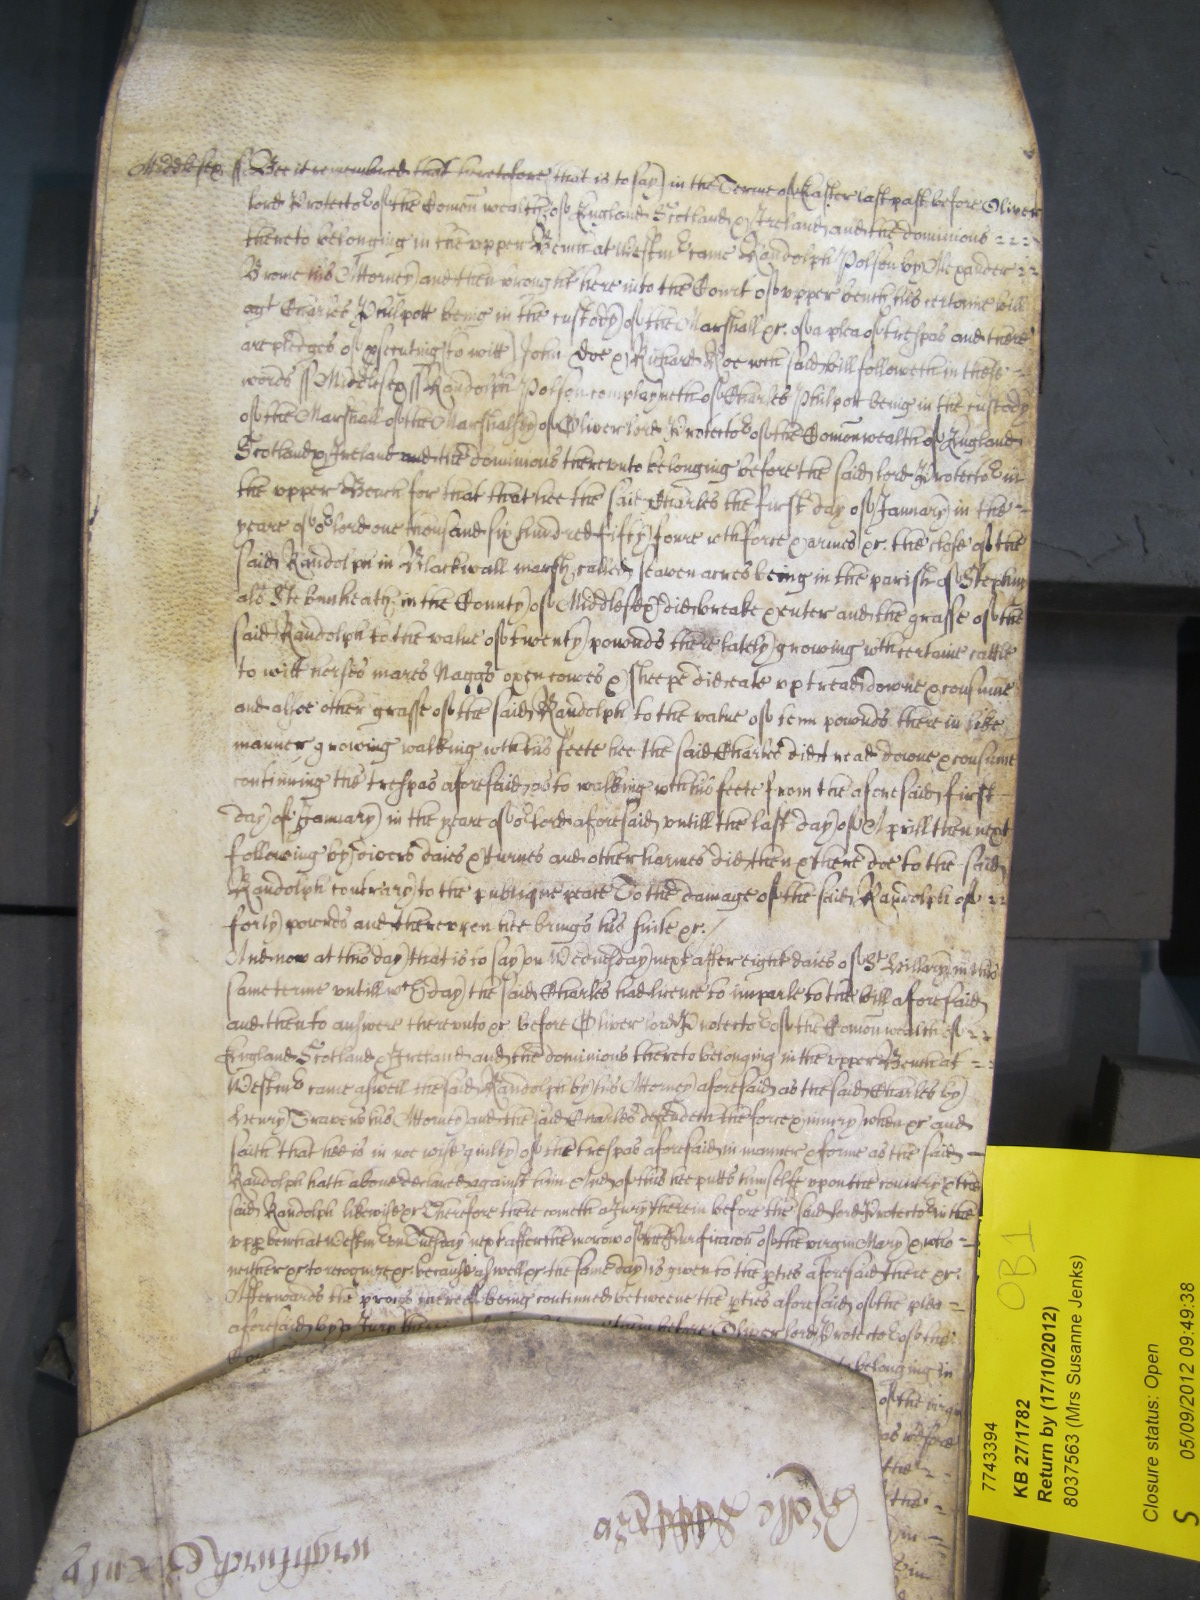 Middlesex ss Bee it remembred that heretofore (that is to say) in the Terme of Easter last past before Oliver
lord Protector of the Comon wealth of England Scotland & Ireland and the dominions
thereto belonging in the upper Bench at Westmr came Randolph Polson by Alexander
Brome his Attorney and then brought here into the Court of upper bench his certaine bill
agt Charles Philpott being in the custody of the Marshall &c. of a plea of trespas and there
are pledges of psecuting to witt John Doe & Richard Roe wch said bill followeth in these
words ss Middlesex ss Randolph Polson complayneth of Charles Philpott being in the custody
of the Marshall of the Marshalsey of Oliver lord Protector of the Comonwealth of England
Scotland & Ireland and the dominions thereunto belonging before the said lord Protector in
the upper Bench for that that hee the said Charles the first day of January in the
yeare of or lord one thousand six hundred fifty foure wth force & armes &c. the close of the
said Randolph in Blackwall marsh called seaven acres being in the parish of
als Stebunheath in the County of Middlesex did breake & enter and the grasse of the
said Randolph to the value of twenty pounds there lately growing wth certaine cattle
to witt horses mares Naggs oxen cowes & sheepe did eate up tread downe & consume
and alsoe other grasse of the said Randolph to the value of tenn pounds there in like
manner growing walking with his feete hee the said Charles did tread downe & consume
continuing the trespas aforesaid as to walking wth his feete from the aforesaid first
day of January in the yeare of or lord aforesaid untill the last day of Aprill then next
following by divers daies & turnes and other harmes did then & there doe to the said
Randolph contrary to the publique peace To the damage of the said Randolph of
forty pounds and thereupon hee brings his suite &c.
And now at this day that is to say on Wednesday next after eight daies of St Hillary in this
same terme untill wch day the said Charles had licence to imparle to the bill aforesaid
and then to answere thereunto &c. before Oliver lord Protector of the Comonwealth of
England Scotland & Ireland and the dominions thereto belonging in the upper Bench at
Westmr came aswell the said Randolph by his Attorney aforesaid as the said Charles by
Henry Travers his Attorney and the said Charles defendeth the force & iniury when &c and
saith that hee is in noe wise guilty of the trespas aforesaid in manner & forme as the said
Randolph hath above declared against him And of this hee putts himselfe upon the country & the
said Randolph likewise &c Therefore there cometh a Jury therein before the said lord Protector in the
upp bench at Westmr on Tuesday next after the morow of the Purificacon of the virgin Mary & who
neither &c to recognize &c because aswell &c the same day is given to the pties aforesaid there &c.
Afterwards the proces being continued betweene the pties aforesaid of the plea
aforesaid by a Jury before Oliver lord Protector of the
belonging in
of the virgin
as before
the
7743394
KB 27/1782
Return by (17/10/2012)
8037563 (Mrs Susanne Jenks)
OB1
Closure status: Open
05/09/2012 09:49:38
S